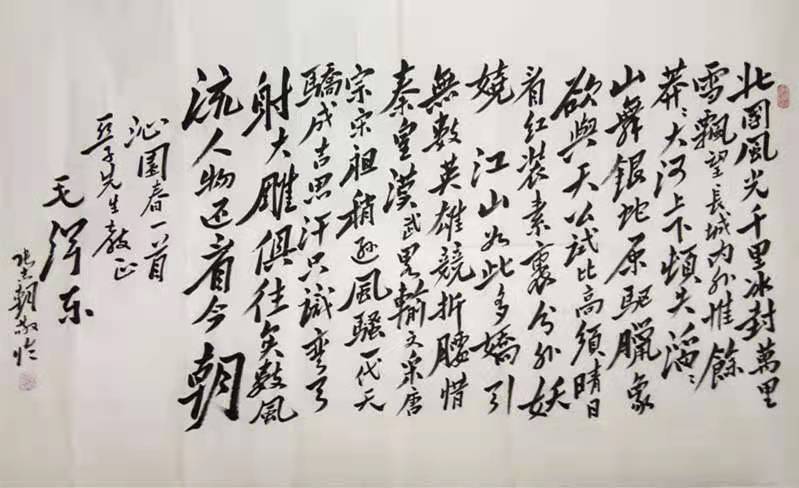 北国風光千里冰封萬里
雪飄望長城内外惟餘
莽々大河上下頓失滔々
山舞銀蛇原驅臘象
欲與天公試比高須晴日
看红装素裹分外妖
嬈江山如此多嬌引
無數英雄競折腰惜
秦皇漢武畧輸文采唐
宗宋祖稍遜風騷一代天
驕成吉思汗只識彎弓
射大雕俱往矣數風
流人物还看今朝
沁園春一首
亞子先生教正
毛澤东